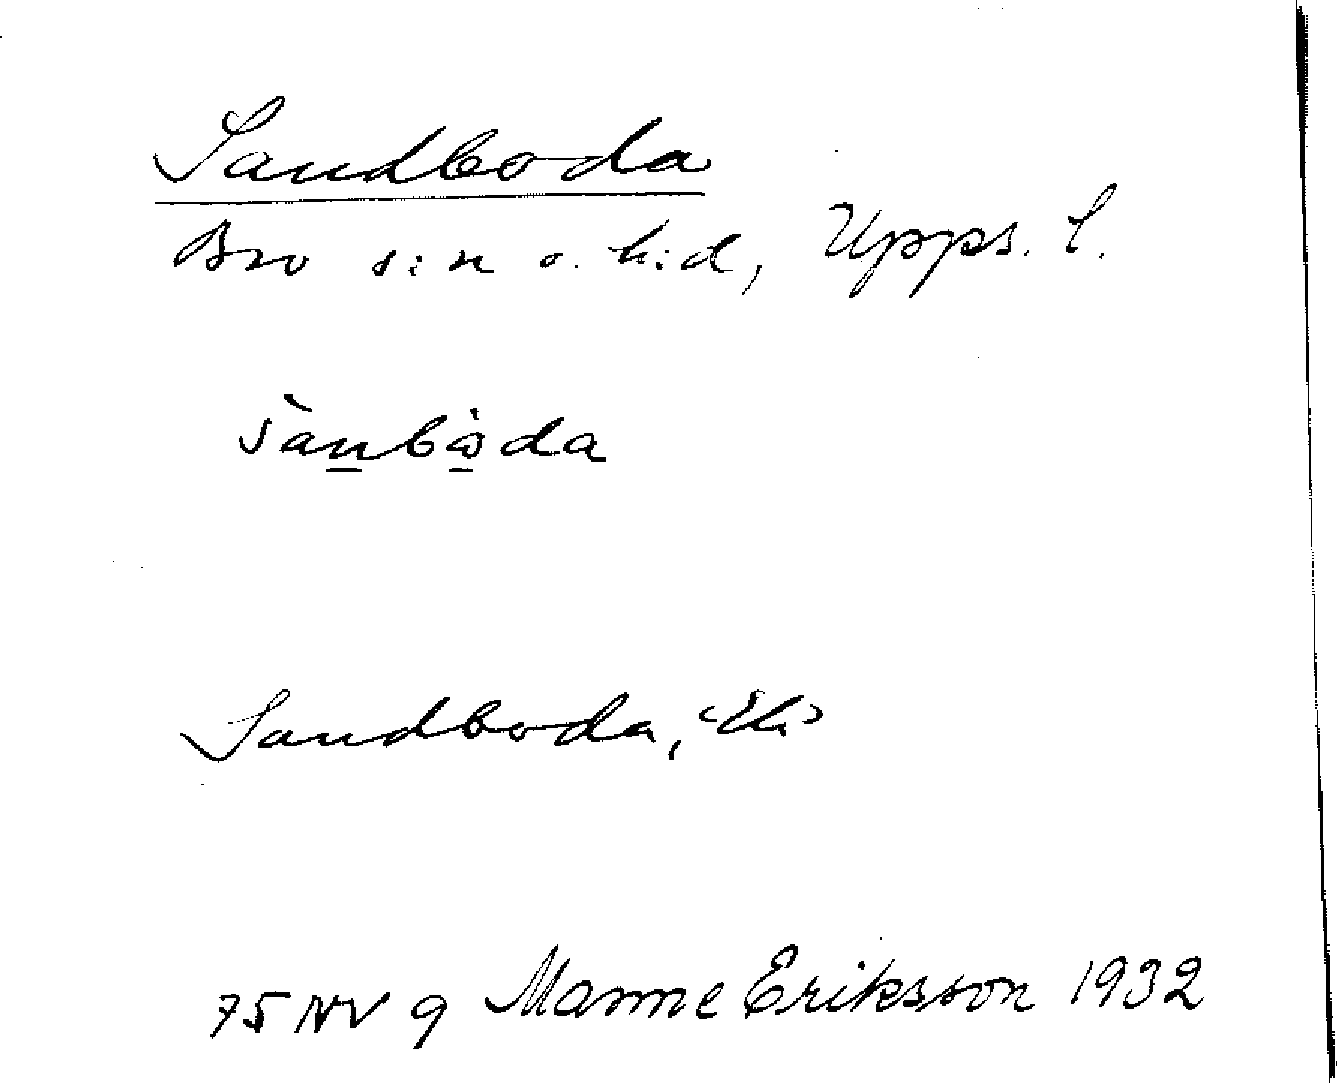 Sandboda
Bro s:n o. h:d, Upps. l.
sànbὼda
Sandboda,
75 NV 9 Manne Eriksson 1932